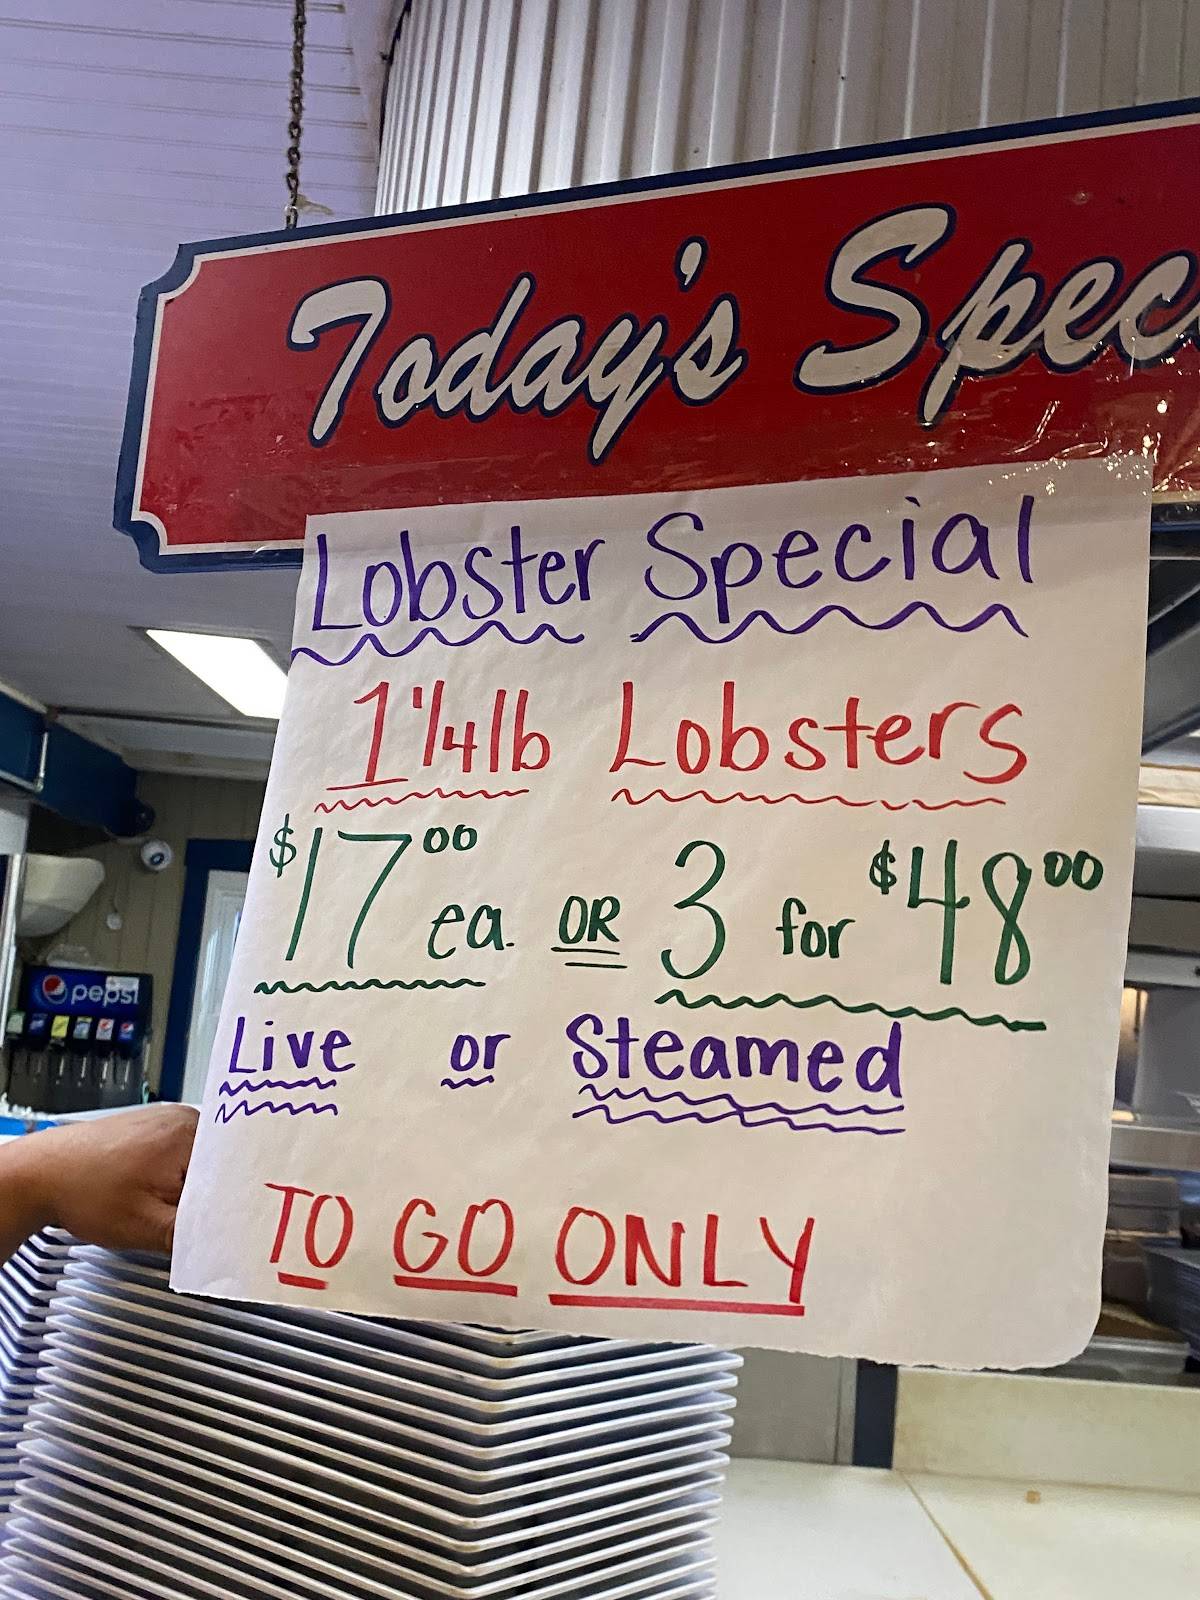 Today's Spec
Lobster Special
1 1/4 lb Lobsters
$17.00 ea. OR 3 for $48.00
Live or Steamed
TO GO ONLY
pepsi